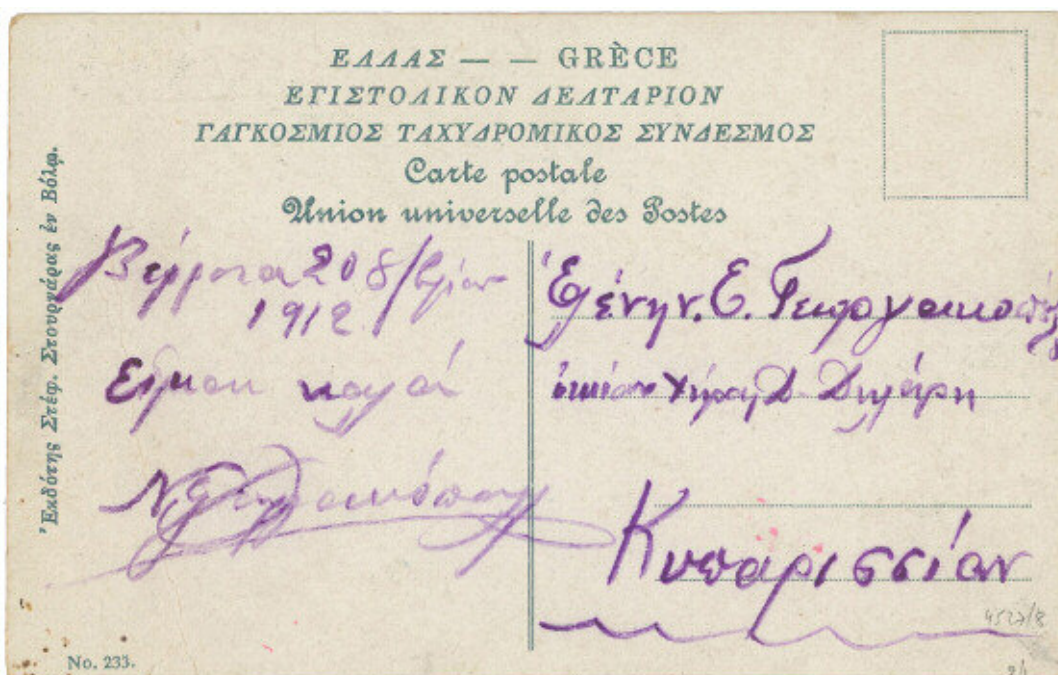 ΕΛΛΑΣ — — GRÈCE
ΕΠΙΣΤΟΛΙΚΟΝ ΔΕΛΤΑΡΙΟΝ
ΠΑΓΚΟΣΜΙΟΣ ΤΑΧΥΔΡΟΜΙΚΟΣ ΣΥΝΔΕΣΜΟΣ
Carte postale
Union universelle des Postes
Ἐκδότης Στέφ. Στουρνάρας ἐν Βόλῳ.
Βέρροια 20 8/βρίου
1912
Εἶμαι καλά
Ἑλένην. Ε. Γεωργακοπούλ
οἰκίαν χήρας Δ. Δηλάρη
Κυπαρισσίαν
No. 233.
4527/8